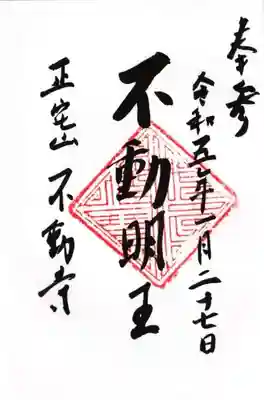 奉拝
令和五年一月二十七日
不動明王
正宝山 不動寺